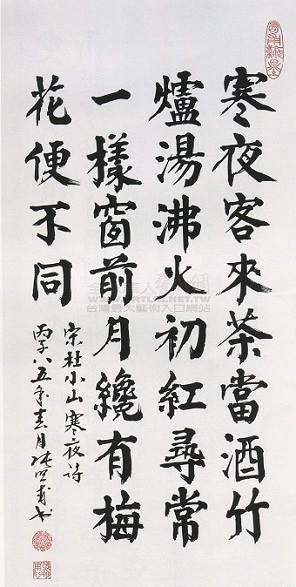 寒夜客來茶當酒竹
爐湯沸火初紅尋常
一樣窗前月纔有梅
花便不同
宋杜小山寒夜詩
丙子八五年 月 書
WWW.ARTLIB.NET.TW
台灣最大藝術入口網站